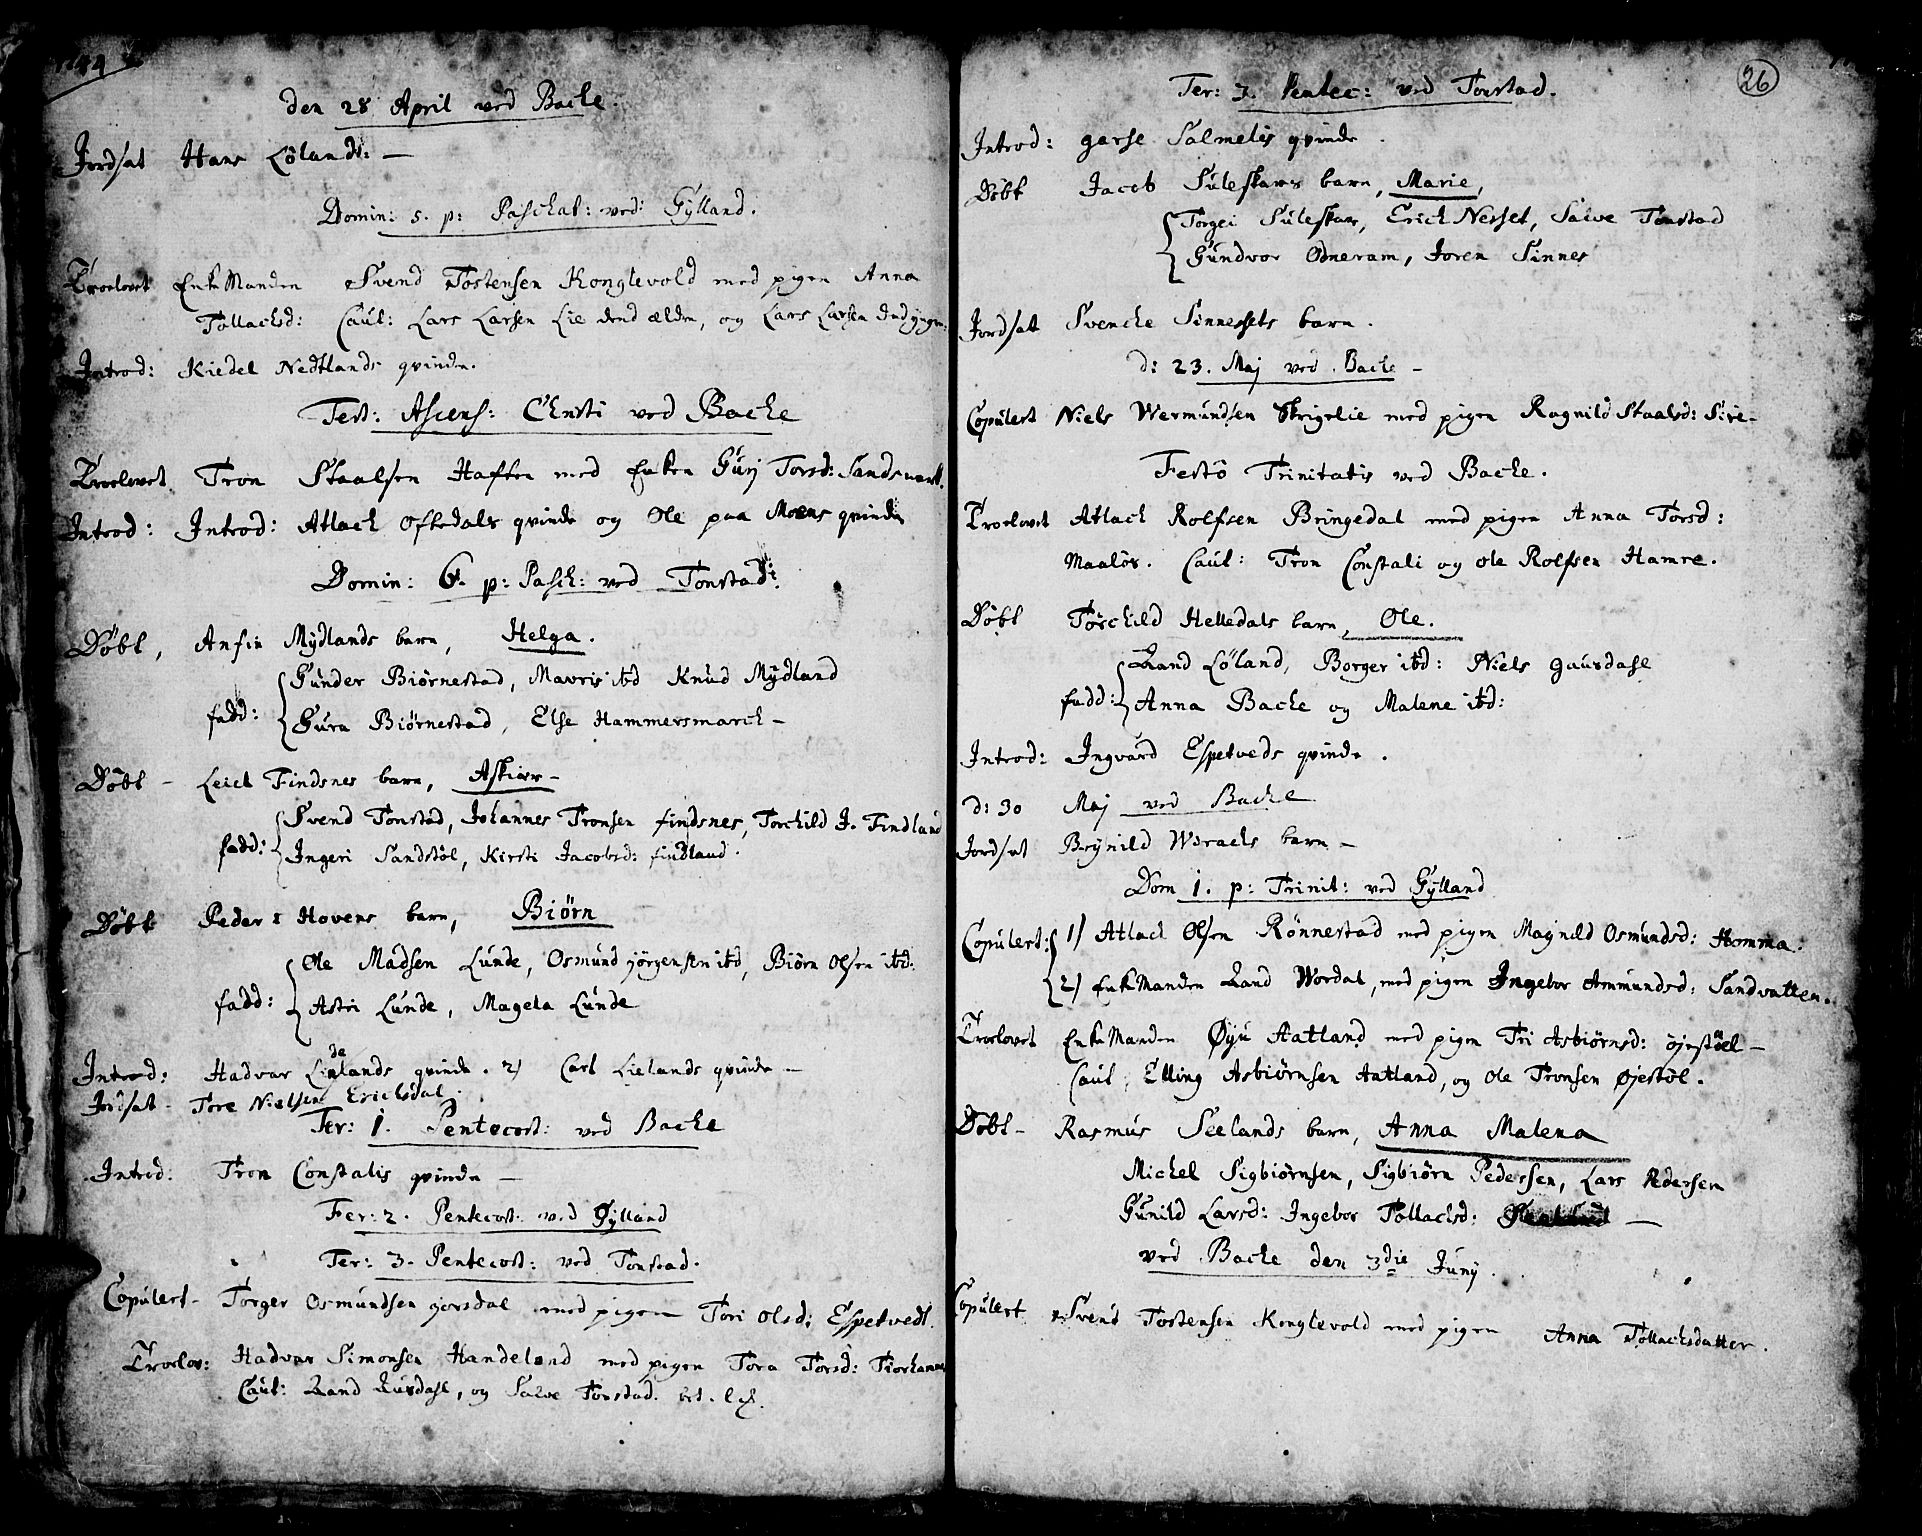 1744
den 28 April ved Backe.
Jordsat Hans Lölands: —
Domin: 5. p: Paschat: ved Gÿlland.
Troelovet EnkeManden Svend Tostensen Konglevold med pigen Anna
Tollachsd: Caut: Lars Larsen Lie dend ælden, og Lars Larsen
Introd: Kiedel Nedtlands qvinde.
Fest: Ascens: Christi ved Backe
Troelovet Tron Staalsen Haften med Enken Guri Torsd: Sandsmark.
Introd: Introd: Atlach Oftedals qvinde og Ole paa Moens qvinde
Domin: 6. p: Pasch: ved Tonstad:
Döbt, Anfin Mÿdlands barn, Helga.
Gunder Biörnestad, Mavris ibd Knud Mÿdland
fadd: Gura Biörnestad, Else Hammersmarch —
Döbt — Leid Findsnes barn, Askier —
Svend Tonstad, Johannes Tronsen findsnes, Torchild J. Findland
fadd: Ingeri Sandstöl, Kirsti Jacobsd: findland.
Döbt Peder Hovens barn, Biörn
Ole Madsen Lunde, Osmund Jörgensen ibd, Biörn Olsen ibd:
fadd: Astri Lunde, Mageta Lunde
Introd: Hadvar Lindelands qvinde. 2) Carl Lielands qvinde —
Jordsat — Tore Nielsen Ericksdal.
Fer: 1. Pentecost: ved Backe
Introd: Tron Constalis qvinde —
Fer: 2. Pentecost: ved Gÿlland
Fer: 3. Pentecost: ved Tonstad.
Copulert — Torger Osmundsen josdal med pigen Tori Olsd: Espetvedt.
Troelov: Hadvar Simonsen Handeland med pigen Tora Torsd: Tiorhamm
Caut: Aand Ausdahl, og Salve Tonstad.
26
Fer: 3. Pentec: ved Tonstad.
Introd: garse Salmelis qvinde.
Döbt Jacob Suleskars barn, Marie,
Torgei Suleskar, Erick Nesset, Salve Tonstad
Gundvor Odneram, Joren Sinnes
Jordsat Svencke Sinnessets barn.
d: 23. Maj ved Backe —
Copulert Niels Wermundsen Skrigelie med pigen Ragnild Staalsd: Sire —
Festo Trinitatis ved Backe.
Troelovet Atlach Rolfsen Bringedal med pigen Anna Torsd:
Maalös. Caut: Tron Constali og Ole Rolfsen Hamre.
Döbt Torchild Helledals barn, Ole.
Aand Löland, Borger ibd: Niels Gausdahl
fadd: Anna Backe og Malene ibd:
Introd: Ingvard Espetveds qvinde.
d: 30 Maj ved Backe
Jordsat Brÿnild Wiraels barn —
Dom 1. p: Trinit: ved Gÿlland
Copulert: 1) Atlack Olsen Rönnestad med pigen Magnild Osmundsd: Homma.
2) EnkeManden Aand Wordal, med pigen Ingebor Ammundsd: Sandvatten.
Troelovet EnkeManden Øyu Aatland med pigen Tri Asbiörnsd: öjestöel —
Caut: Elling Asbiörnsen Aatland, og Ole Tronsen Øjestöl.
Döbt — Rasmus Seelands barn, Anna Malena
Michel Sigbiörnsen, Sigbiörn Pedersen, Lars Pedersen
Gunild Larsd: Ingebor Tollachsd: —
ved Backe den 3die Junÿ.
Copulert Svend Tostensen Konglevold med pigen Anna Tollachsdatter.